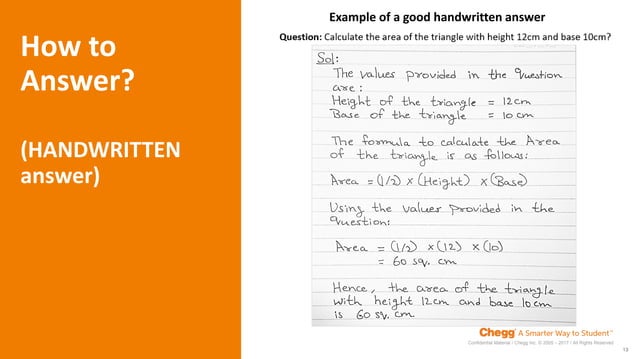 How to
Answer?
(HANDWRITTEN
answer)
Example of a good handwritten answer
Question: Calculate the area of the triangle with height 12cm and base 10cm?
Sol:
The values provided in the question
are:
Height of the triangle = 12cm
Base of the triangle = 10cm
The formula to calculate the Area
of the triangle is as follows:
Area = (1/2) × (Height) × (Base)
Using the values provided in the
question:
Area = (1/2) × (12) × (10)
= 60 sq. cm
Hence, the area of the triangle
with height 12cm and base 10cm
is 60 sq. cm
Chegg A Smarter Way to Student™
Confidential Material / Chegg Inc. © 2005 – 2017 / All Rights Reserved
13